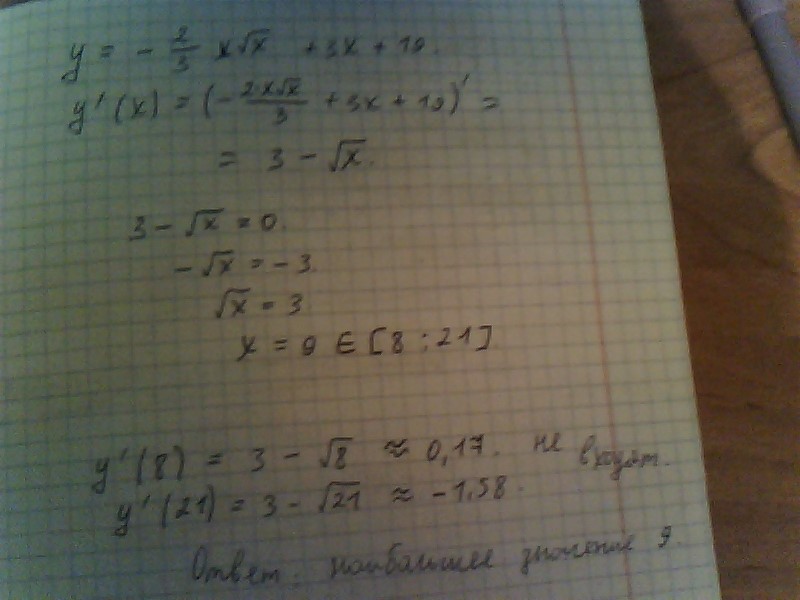 y = - 2/3 x√x + 3x + 19.
y'(x) = (- 2x√x/3 + 3x + 19)' =
= 3 - √x.
3 - √x = 0.
-√x = -3.
√x = 3
x = 9 ∈ [8 ; 21]
y'(8) = 3 - √8 ≈ 0,17. не входят.
y'(21) = 3 - √21 ≈ -1,58.
Ответ: наибольшее значение 9.